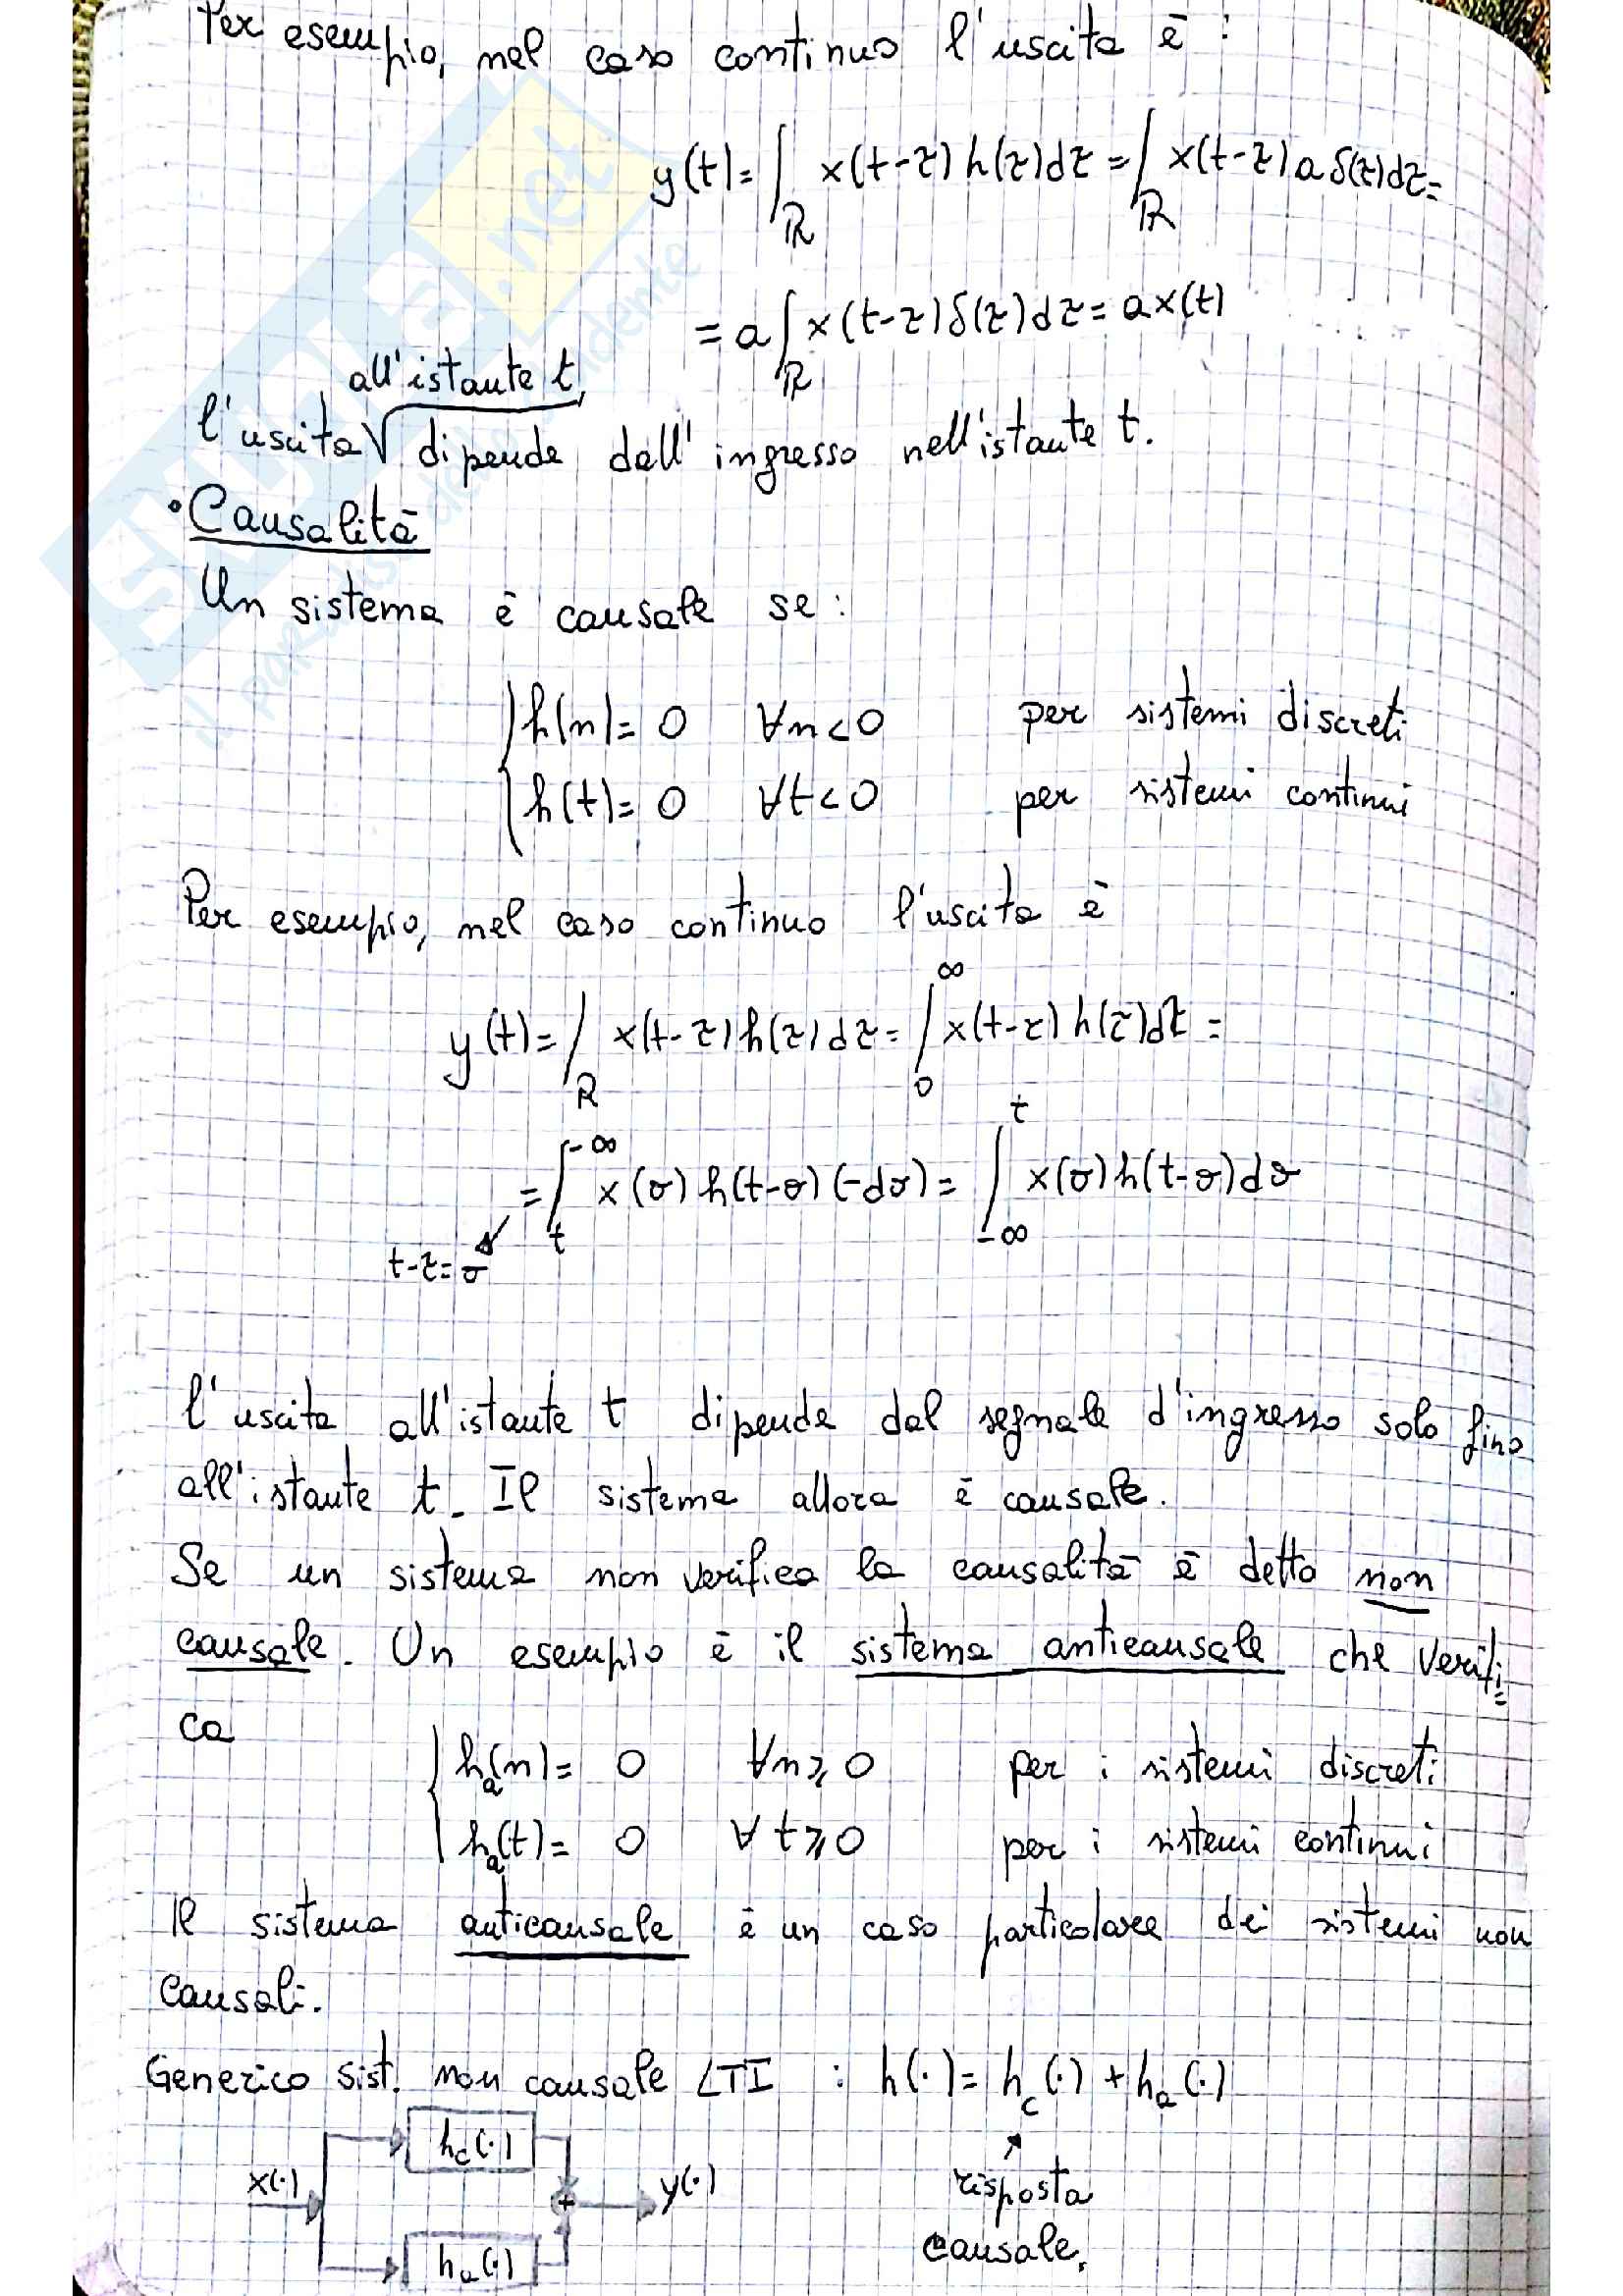 Per esempio, nel caso continuo l'uscita è:
y(t)= ∫_R x(t-τ) h(τ)dτ = ∫_R x(t-τ) a δ(τ)dτ=
= a ∫_R x(t-τ)δ(τ)dτ = a x(t)
all'istante t,
l'uscita √ dipende dall'ingresso nell'istante t.
• Causalità
Un sistema è causale se:
h(n)= 0 ∀n<0 per sistemi discreti
h(t)= 0 ∀t<0 per sistemi continui
Per esempio, nel caso continuo l'uscita è
y(t)= ∫_R x(t-τ)h(τ)dτ = ∫_0^∞ x(t-τ)h(τ)dτ =
= ∫_t^-∞ x(σ)h(t-σ)(-dσ)= ∫_-∞^t x(σ)h(t-σ)dσ
t-τ=σ
l'uscita all'istante t dipende dal segnale d'ingresso solo fino
all'istante t. Il sistema allora è causale.
Se un sistema non verifica la causalità è detto non
causale. Un esempio è il sistema anticausale che verifi=
ca
h_a(n)= 0 ∀n⩾0 per i sistemi discreti
h_a(t)= 0 ∀t⩾0 per i sistemi continui
Il sistema anticausale è un caso particolare dei sistemi non
causali.
Generico sist. non causale LTI : h(·)= h_c(·)+h_a(·)
h_c(·)
x(·) + y(·)
h_a(·)
risposta
causale,